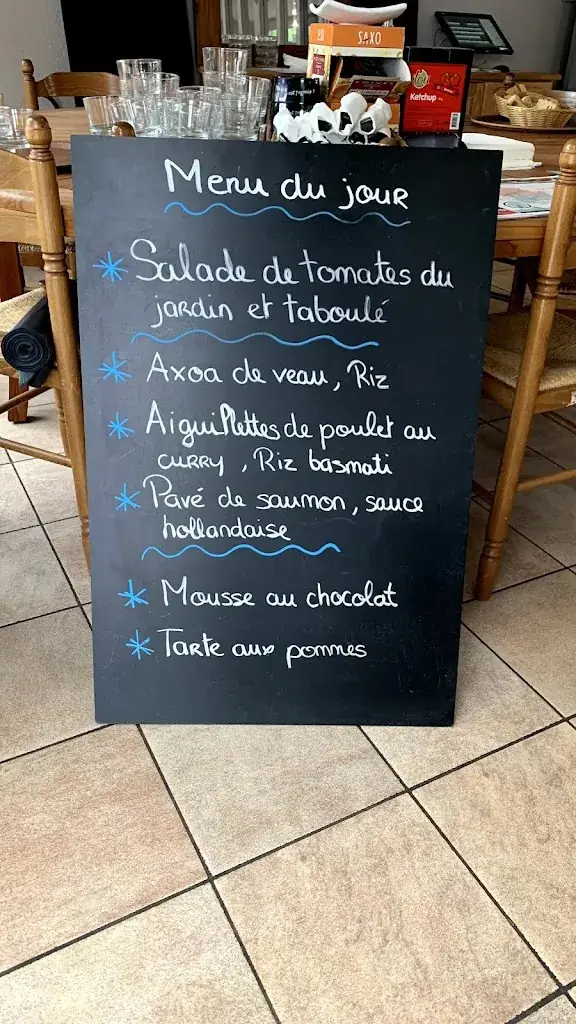 SAXO
Ketchup
Menu du jour
Salade de tomates du
jardin et taboulé
Axoa de veau, Riz
Aiguillettes de poulet au
curry, Riz basmati
Pavé de saumon, sauce
hollandaise
Mousse au chocolat
Tarte aux pommes